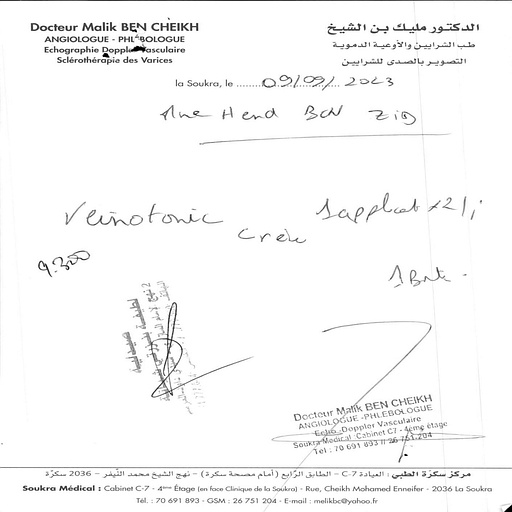 Docteur Malik BEN CHEIKH
ANGIOLOGUE - PHLEBOLOGUE
Echographie Doppler Vasculaire
Sclérothérapie des Varices
الدكتور مليك بن الشيخ
طب الشرايين والأوعية الدموية
التصوير بالصدى للشرايين
la Soukra, le 09/09/2023
Hend BEN ZID
Veinotonic 1 applicat x 2/j
crème
9.300
1 Bte.
Docteur Malik BEN CHEIKH
ANGIOLOGUE -PHLEBOLOGUE
Echo -Doppler Vasculaire
Soukra Médical Cabinet C7 - 4ème étage
Tel : 70 691 893 // 26 751 204
مركز سكرة الطبي : العيادة C-7 - الطابق الرابع (أمام مصحة سكرة) - نهج الشيخ محمد النيفر - 2036 سكرة
Soukra Médical : Cabinet C-7 - 4ème Étage (en face Clinique de la Soukra) - Rue, Cheikh Mohamed Enneifer - 2036 La Soukra
Tél. : 70 691 893 - GSM : 26 751 204 - E-mail : melikbc@yahoo.fr